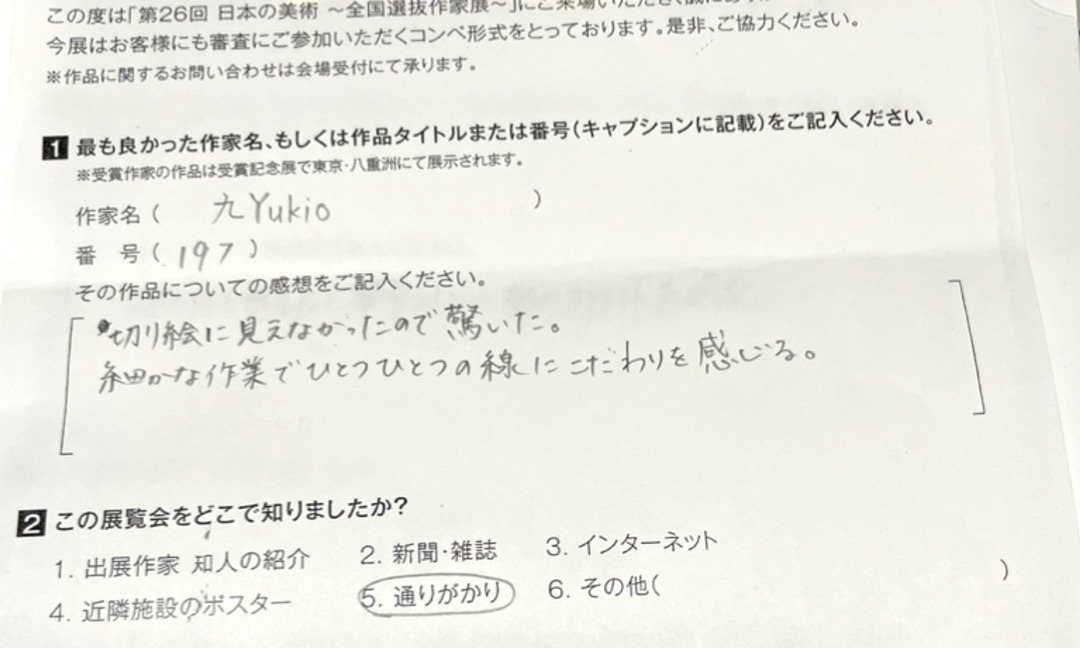 この度は「第26回 日本の美術 ～全国選抜作家展～」にご来場いただき、誠にあり
今展はお客様にも審査にご参加いただくコンペ形式をとっております。是非、ご協力ください。
※作品に関するお問い合わせは会場受付にて承ります。
1 最も良かった作家名、もしくは作品タイトルまたは番号(キャプションに記載)をご記入ください。
※受賞作家の作品は受賞記念展で東京・八重洲にて展示されます。
作家名( 九Yukio )
番 号( 197 )
その作品についての感想をご記入ください。
切り絵に見えなかったので驚いた。
細かな作業でひとつひとつの線にこだわりを感じる。
2 この展覧会をどこで知りましたか?
1. 出展作家 知人の紹介 2. 新聞・雑誌 3. インターネット
4. 近隣施設のポスター 5. 通りがかり 6. その他( )